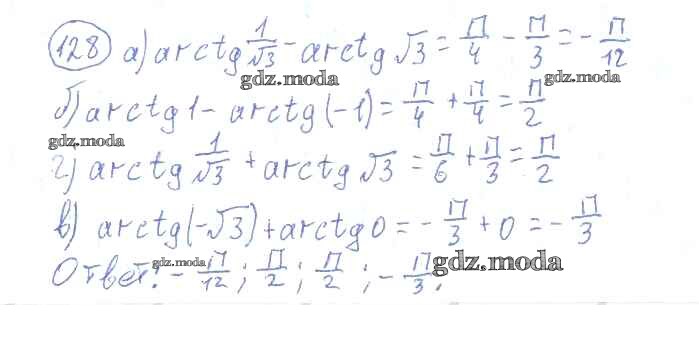 128 а) arctg 1/√3 - arctg √3 = П/4 - П/3 = - П/12
gdz.moda
gdz.moda
б) arctg 1 - arctg (-1) = П/4 + П/4 = П/2
gdz.moda
г) arctg 1/√3 + arctg √3 = П/6 + П/3 = П/2
в) arctg(-√3) + arctg 0 = - П/3 + 0 = - П/3
Ответ: - П/12 ; П/2 ; П/2 ; - П/3.
gdz.moda
gdz.moda